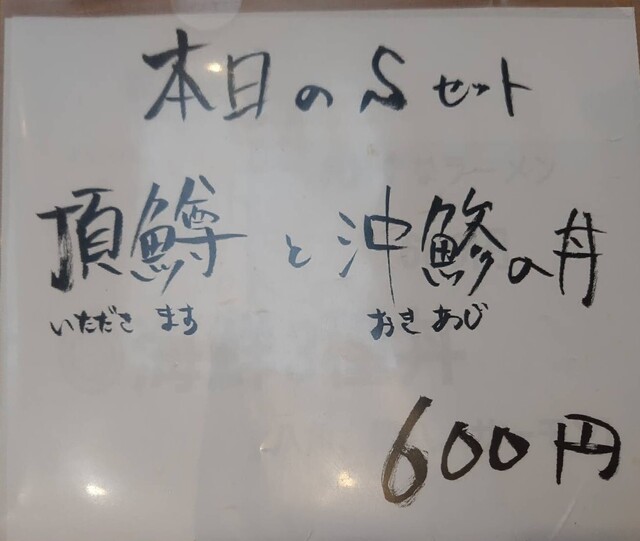 本日のSセット
頂鱒と沖鯵の丼
いただきます おきあじ
600円